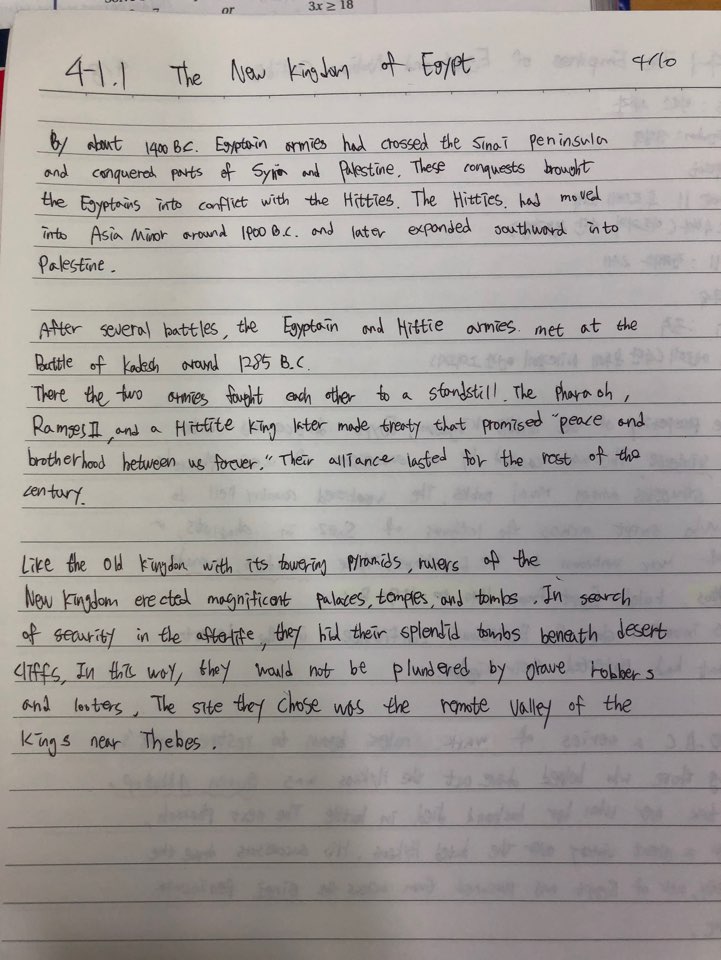 or
3x ≥ 18
4-1.1 The New Kingdom of Egypt 4/10
By about 1400 B.C. Egyptain armies had crossed the Sinai Peninsula
and conquered parts of Syria and Palestine. These conquests brought
the Egyptains into conflict with the Hitties. The Hitties. had moved
into Asia Minor around 1900 B.C. and later expanded southward into
Palestine.
After several battles, the Egyptain and Hittie armies. met at the
Battle of Kadesh around 1285 B.C.
There the two armies fought each other to a standstill. The pharaoh,
Ramses II, and a Hittite King later made treaty that promised "peace and
brotherhood between us forever." Their alliance lasted for the rest of the
century.
Like the Old Kingdom with its towering pyramids, rulers of the
New Kingdom erected magnificent palaces, temples, and tombs. In search
of security in the afterlife, they hid their splendid tombs beneath desert
cliffs, In this way, they would not be plundered by grave robbers
and looters, The site they chose was the remote Valley of the
Kings near Thebes.